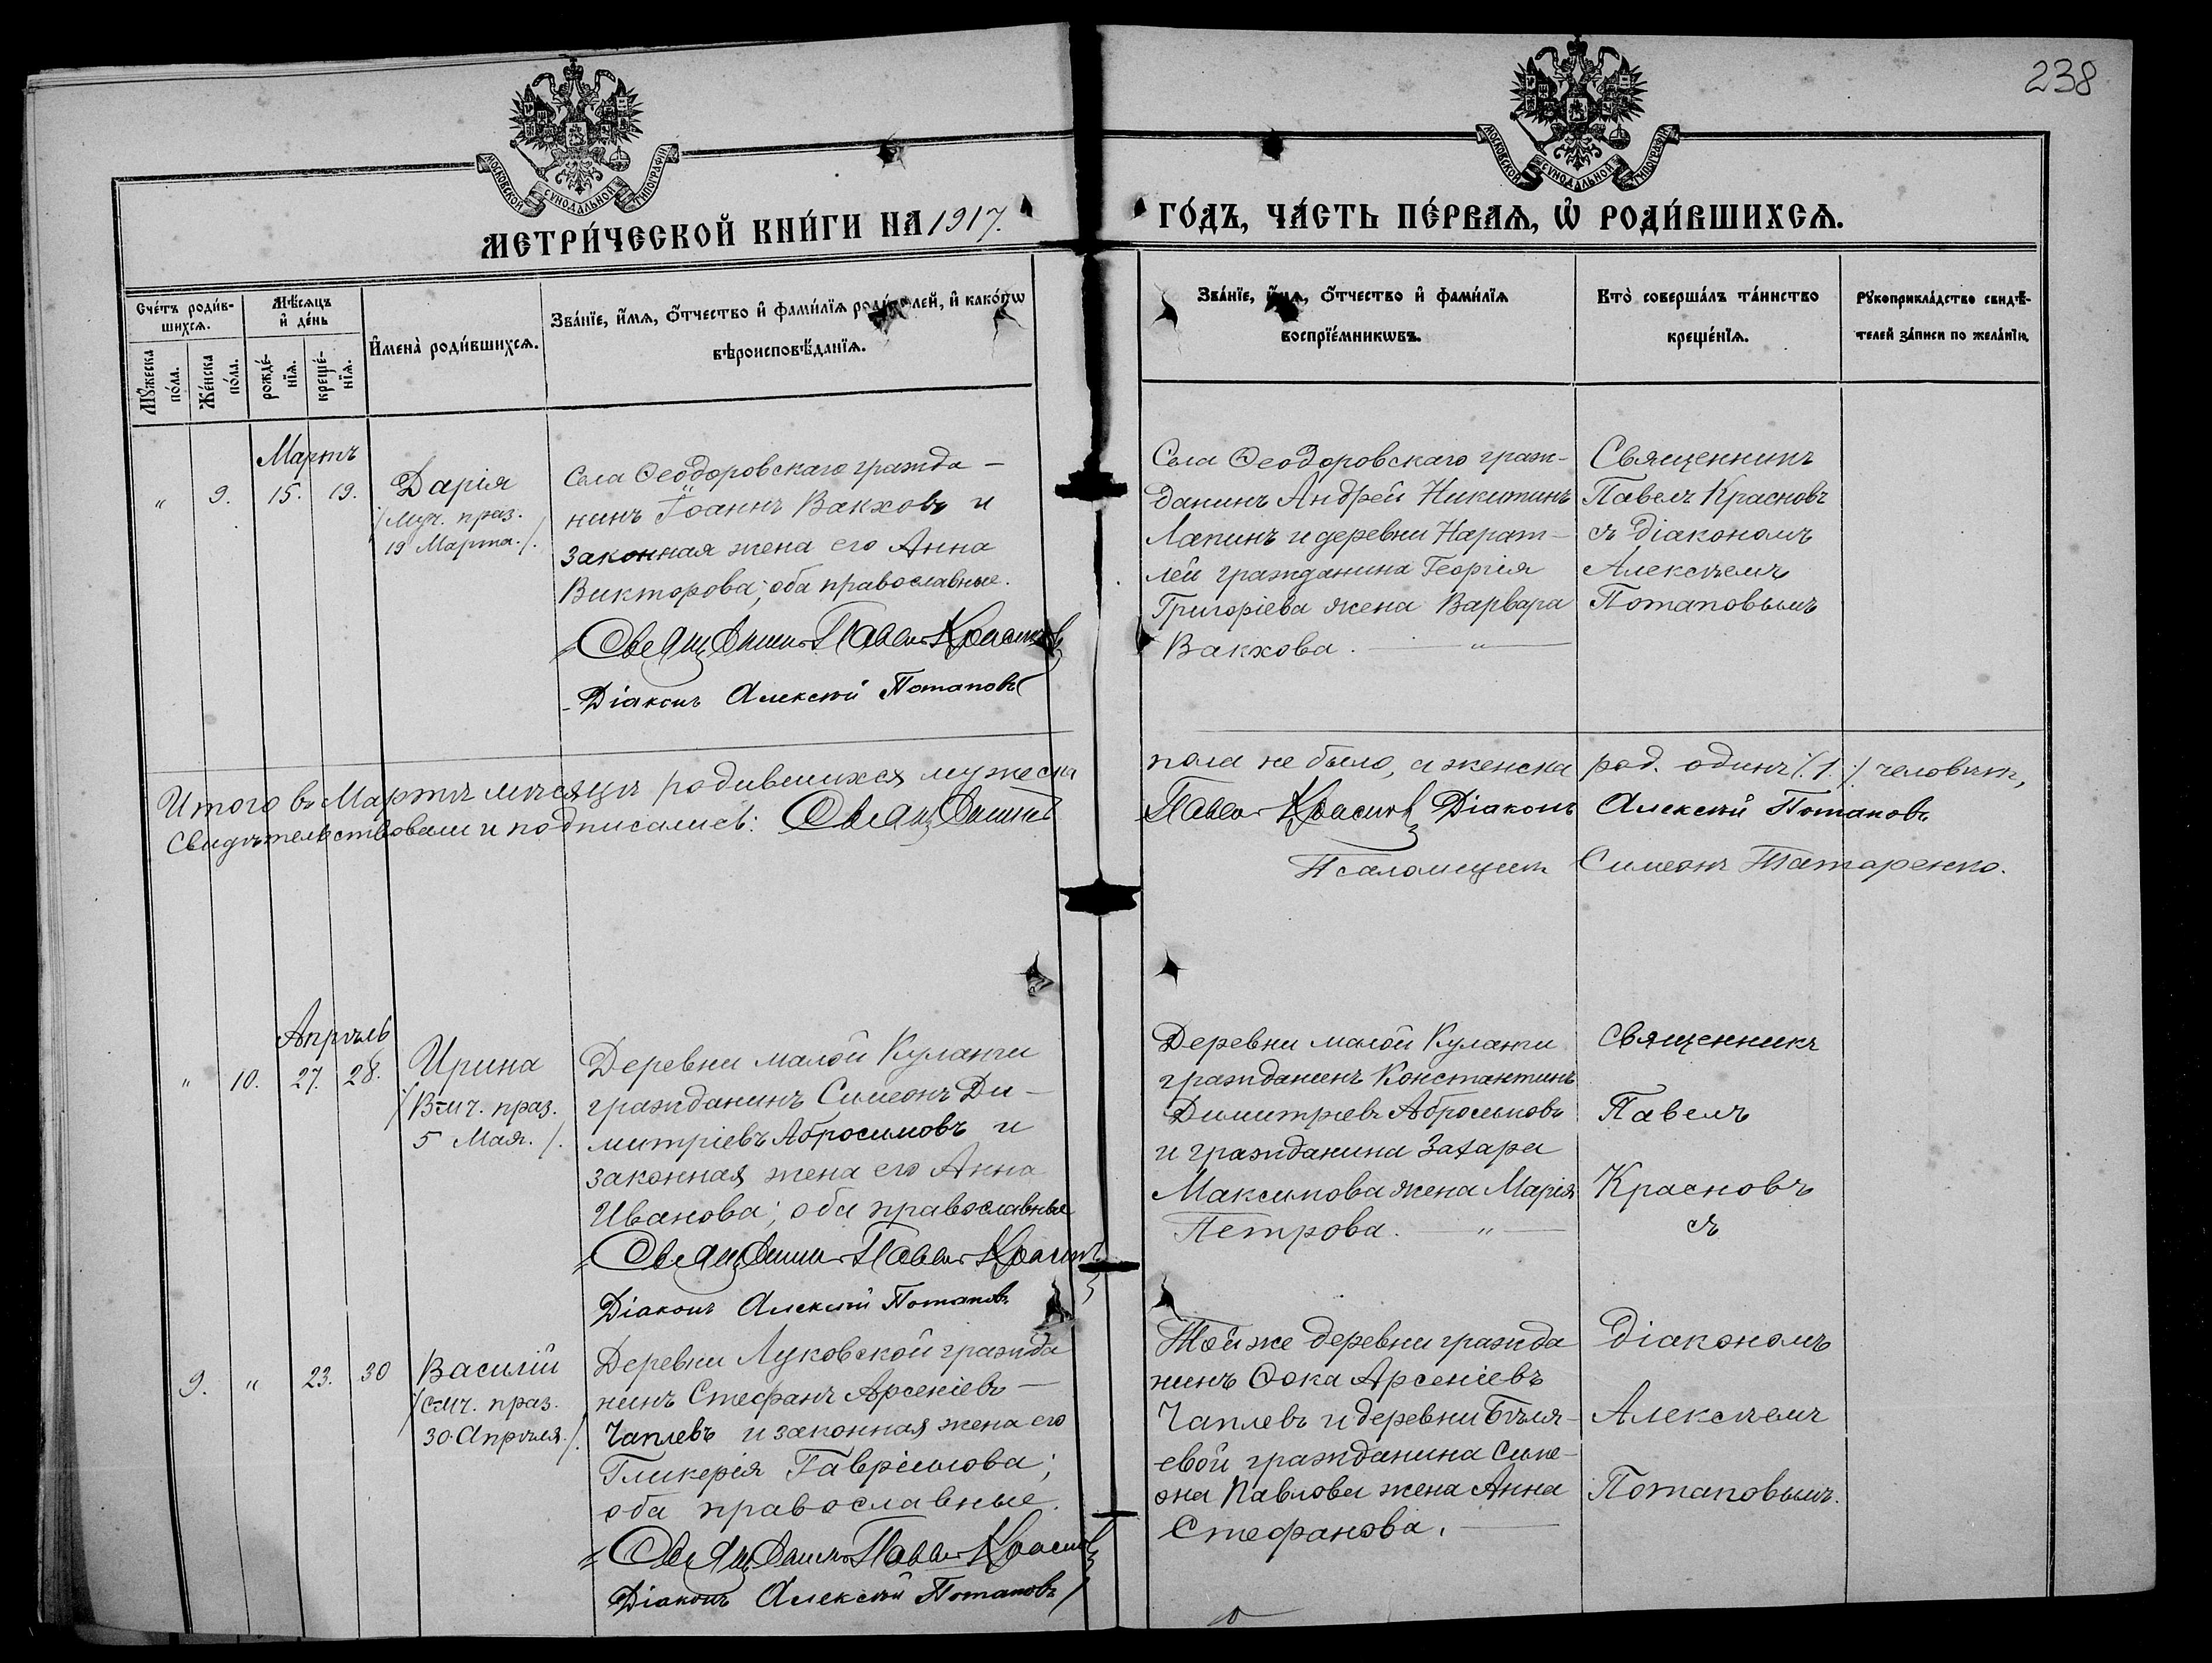 238
МОСКОВСКОЙ СУНОДАЛЬНОЙ ТИПОГРАФІИ
МОСКОВСКОЙ СУНОДАЛЬНОЙ ТИПОГРАФІИ
МЕТРИ́ЧЕСКОЙ КНИ́ГИ НА 1917.
ГО́ДЪ, ЧА́СТЬ ПЕ́РВАѦ, Ѡ҆ РОДИ́ВШИХСѦ.
Сче́тъ роди́в-
шихсѧ.
Мꙋ́жеска
по́ла.
Же́нска
по́ла.
Мѣ́сѧцъ
и҆ де́нь
рожде́-
нїѧ.
креще́-
нїѧ.
И҆мена̀ роди́вшихсѧ.
Зва́нїе, и҆́мѧ, ѻ҆́тчество и҆ фами́лїѧ роди́телей, и҆ како́гѡ
вѣроисповѣ́данїѧ.
Зва́нїе, и҆́мѧ, ѻ҆́тчество и҆ фами́лїѧ
воспрїе́мникѡвъ.
Кто̀ соверша́лъ та́инство
креще́нїѧ.
Рꙋкоприкла́дство свидѣ́-
телей за́писи по жела́нїю.
Мартъ
" 9. 15. 19.
Дарія
/Муч. праз.
19 Марта./.
Села Ѳеодоровскаго гражда-
нинъ Іоаннъ Вакховъ и
законная жена его Анна
Викторова; оба православные.
Священникъ Павелъ Красновъ
Діаконъ Алексѣй Потаповъ
Села Ѳеодоровскаго граж-
данинъ Андрей Никитинъ
Лапинъ и деревни Нарат-
лей гражданина Георгія
Григоріева жена Варвара
Вакхова. — " —
Священникъ
Павелъ Красновъ
съ діакономъ
Алексѣемъ
Потаповымъ
Итого въ Мартѣ мѣсяцѣ родившихся мужеска
пола не было, а женска род. одинъ /.1./ человѣкъ,
Свидѣтельствовали и подписались: Священникъ
Павелъ Красновъ Діаконъ Алексѣй Потаповъ
Псаломщикъ Симеонъ Татаренко.
Апрѣль
" 10. 27. 28.
Ирина
/Вмч. праз.
5 Мая./.
Деревни малой Куланги
гражданинъ Симеонъ Ди-
митріевъ Абросимовъ и
законная жена его Анна
Иванова; оба православные
Священникъ Павелъ Красновъ
Діаконъ Алексѣй Потаповъ
Деревни малой Куланги
гражданинъ Константинъ
Димитріевъ Абросимовъ
и гражданина Захара
Максимова жена Марія
Петрова. — " —
Священникъ
Павелъ
Красновъ
съ
9. " 23. 30
Василій
/Смч. праз.
30 Апрѣля./.
Деревни Луковской гражда
нинъ Стефанъ Арсеніевъ-
Чаплевъ и законная жена его
Гликерія Гавріилова;
оба православные.
Священникъ Павелъ Красновъ
Діаконъ Алексѣй Потаповъ
Той же деревни гражда
нинъ Ѳока Арсеніевъ
Чаплевъ и деревни Бѣля-
евой гражданина Симе-
она Павлова жена Анна
Стефанова. —
діакономъ
Алексѣемъ
Потаповымъ.